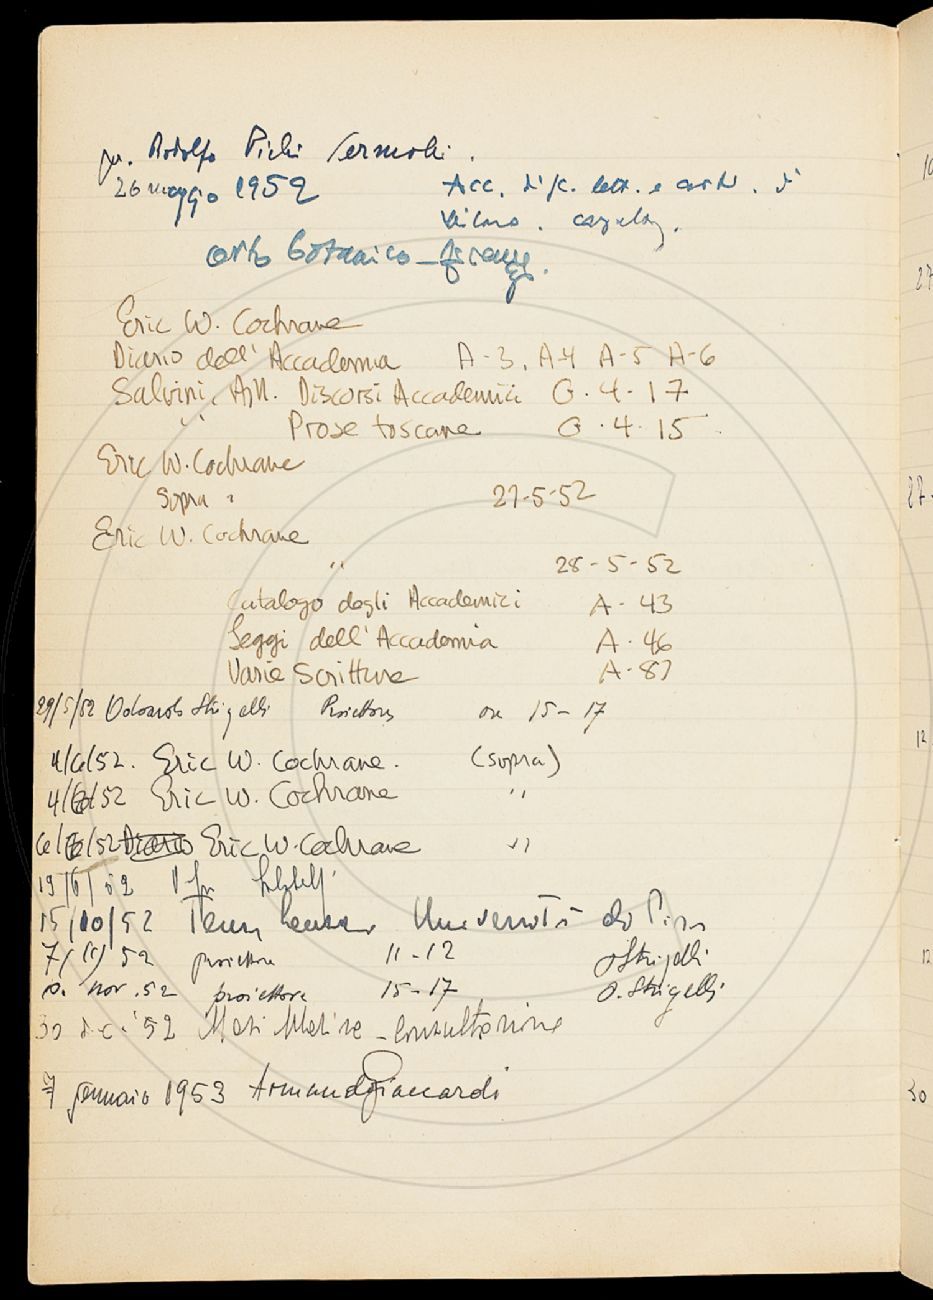 Rodolfo Pichi Sermolli.
26 maggio 1952 Acc. di lett. e arti. di
Milano. catalog.
Orto botanico - Firenze.
Eric W. Cochrane
Diario dell'Accademia A-3, A4 A-5 A-6
Salvini, A.M. Discorsi Accademici G.4.17
" Prose toscane G.4.15
Eric W. Cochrane
Sopra " 27-5-52
Eric W. Cochrane
" 28-5-52
Catalogo degli Accademici A-43
Leggi dell'Accademia A.46
Varie Scritture A-87
29/5/52 Odoardo Strigelli Proiettore ore 15-17
4/6/52. Eric W. Cochrane. (sopra)
4/6/52 Eric W. Cochrane "
6/6/52 Eric W. Cochrane "
19/6/52
15/10/52 Università di Pisa
7/11/52 proiettore 11-12 O Strigelli
nov. 52 proiettore 15-17 O. Strigelli
30 dec. '52 - Consultazione
7 gennaio 1953 Armando Giaccardi
10
27
27-
12
12
30